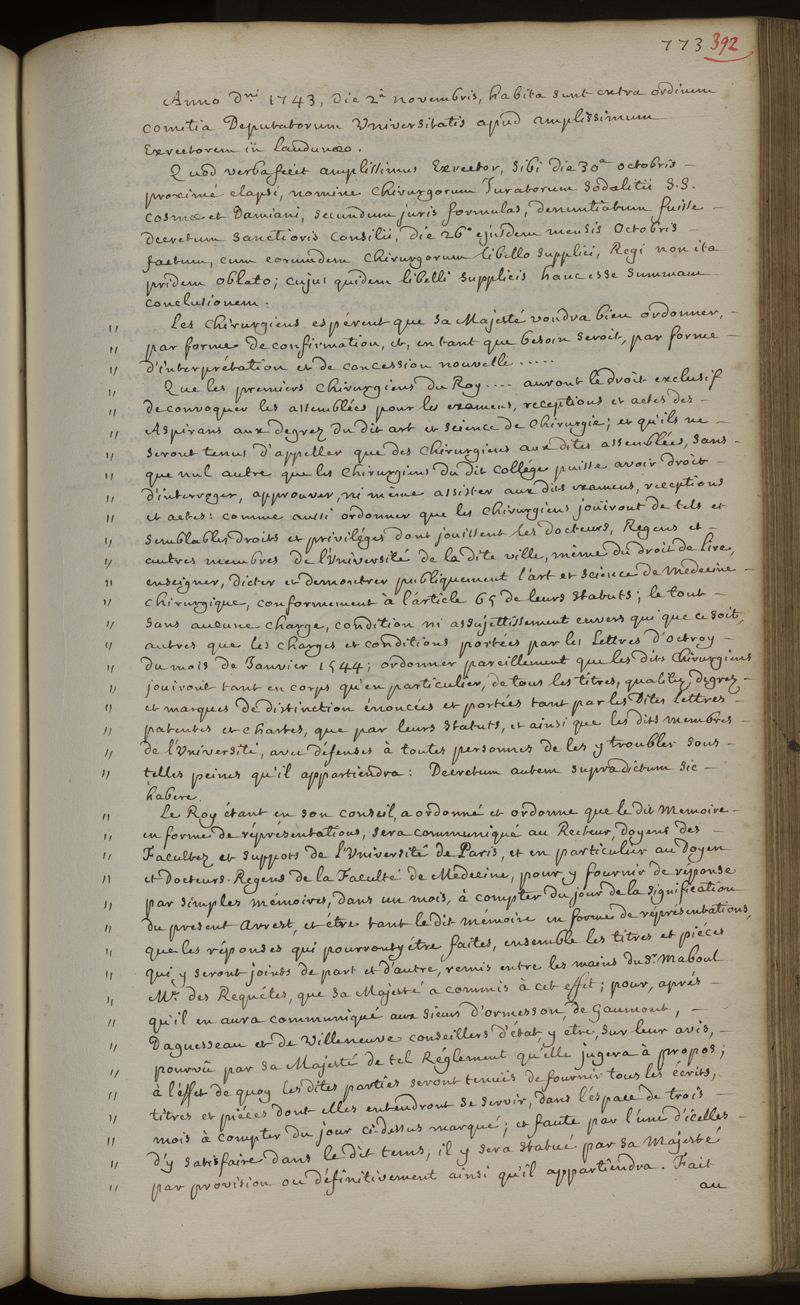 773 392
Anno dni 1743, die 2a novembris, habita sunt extra ordinem
comitia Deputatorum Universitatis apud amplissimum
Exrectorem in Laudunæo.
Quod verba fecit amplissimus Exrector, sibi die 30a octobris –
proximè elapsi, nomine Chirurgorum Juratorum Sodalitii S.S.
Cosmæ et Damiani, secundum juris formulas, denuntiatum fuisse –
decretum Sanctioris Consilii, die 26a ejusdem mensis Octobris –
factum, cum eorumdem Chirurgorum libello supplici, Regi non ita
pridem oblato; cujus quidem libelli supplicis hanc esse summam
conclusionem.
" Les Chirurgiens espérent que sa Majesté voudra bien ordonner, –
" par forme de confirmation, et, en tant que besoin seroit, par forme –
" d'interprétation et de concession nouvelle .....
" Que les premiers Chirurgiens du Roy .... auront le droit exclusif
" de convoquer les assemblées pour les examens, receptions et actes des –
" Aspirans aux degrez du dit art et science de Chirurgie; et qu'ils ne –
" seront tenus d'appeller que des Chirurgiens aux dites assemblées, sans –
" que nul autre que les Chirurgiens du dit Collége puisse avoir droit –
" d'interroger, approuver, ni même assister aux dits examens, receptions
" et actes: comme aussi ordonner que les Chirurgiens joüiront de tels et
" semblables droits et priviléges dont joüissent les docteurs, Regens et –
" autres membres de l'Université de la dite ville, même du droit de Lire,
" enseigner, dicter et demontrer publiquement l'art et science de Medecine –
" Chirurgique, conformement à l'article 65 de leurs statuts; le tout –
" sans aucune charge, condition ni assujettissement envers qui que ce soit,
" autres que les charges et conditions portées par les Lettres d'octroy –
" du mois de Janvier 1544; ordonner pareillement que les dits Chirurgiens
" joüiront tant en corps qu'en particulier, de tous les titres, qualitez, degrez –
" et marques de distinction énoncées et portées tant par les dites Lettres –
" patentes et chartes, que par leurs statuts, et ainsi que les dits membres –
" de l'Université, avec défenses à toutes personnes de les y troubler sous –
" telles peines qu'il appartiendra: Decretum autem supradictum sic –
habere.
" Le Roy étant en son conseil, a ordonné et ordonne que le dit Memoire –
" en forme de répresentations, sera communiqué au Recteur, Doyens des –
" Facultez et suppots de l'Université de Paris, et en particulier au Doyen
" et Docteurs-Regens de la Faculté de Medecine, pour y fournir de réponse
" par simples mémoires, dans un mois, à compter du jour de la signification
" du present Arrest, et être tant le dit mémoire en forme de répresentations,
" que les réponses qui pourront y être faites, ensemble les titres et piéces
" qui y seront joints de part et d'autre, remis entre les mains du Sr. Maboul
" Me. des Requêtes, que sa Majesté a commis à cet effet; pour, aprés –
" qu'il en aura communiqué aux Sieurs d'ormesson, de Gaumont, –
" Daguesseau et de Villeneuve conseillers d'état, y être, sur leur avis, –
" pourvû par sa Majesté de tel Réglement qu'elle jugera à propos;
" à l'effet de quoy les dites parties seront tenuës de fournir tous les écrits,
" titres et piéces dont elles entendront se servir, dans l'éspace de trois –
" mois à compter du jour ci-dessus marqué; et faute par l'une d'icelles –
" d'y satisfaire dans le dit tems, il y sera statué par sa Majesté
" par provision ou définitivement ainsi qu'il appartiendra. Fait
au